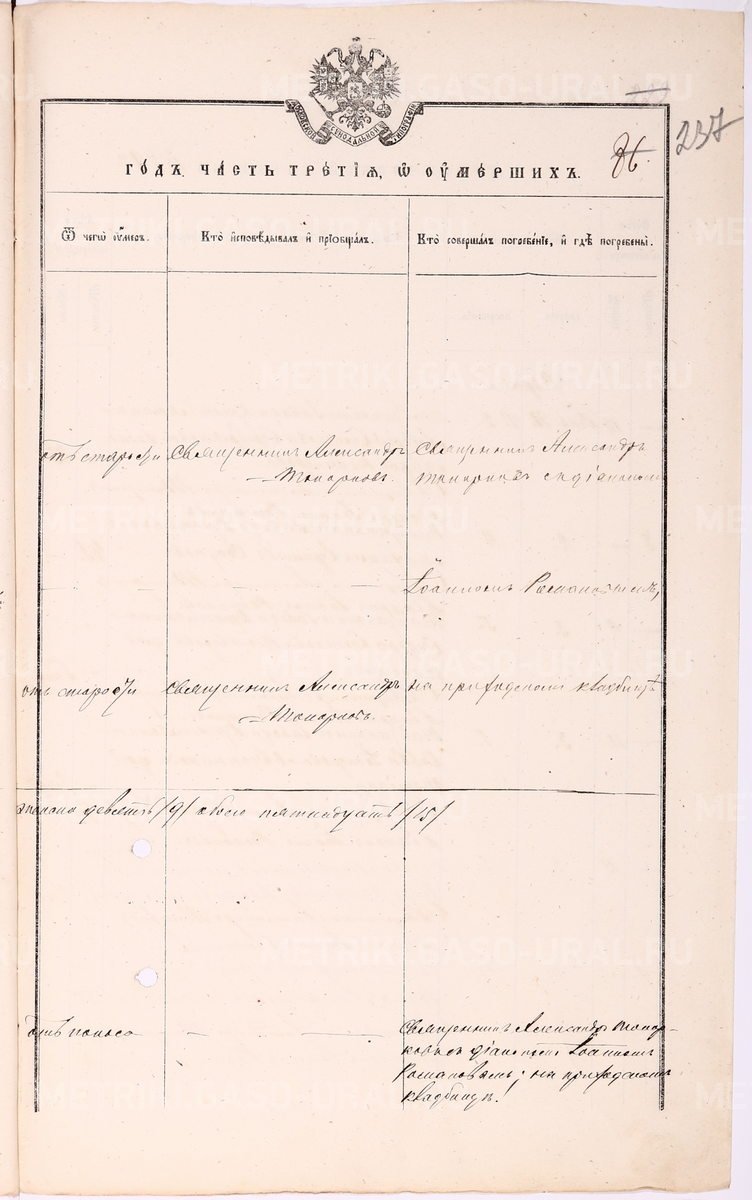 237
86.
ГОДЪ ЧАСТЬ ТРЕТІЯ, Ѡ ОУМЕРШИХЪ.
Ѿ чегѡ оумеръ.
Кто исповѣдывалъ и пріобщалъ.
Кто совершалъ погребеніе, и гдѣ погребены.
отъ старости
Священникъ Александръ
Священникъ Александръ
съ діакономъ
Іоанномъ Романовымъ,
отъ старости
Священникъ Александръ
на приходскомъ кладбищѣ
девять /9/ обоего пятнадцать /15/
отъ поноса
Священникъ Александръ
съ діакономъ Іоанномъ
Романовымъ; на приходскомъ
кладбищѣ!
METRIKI.GASO-URAL.RU